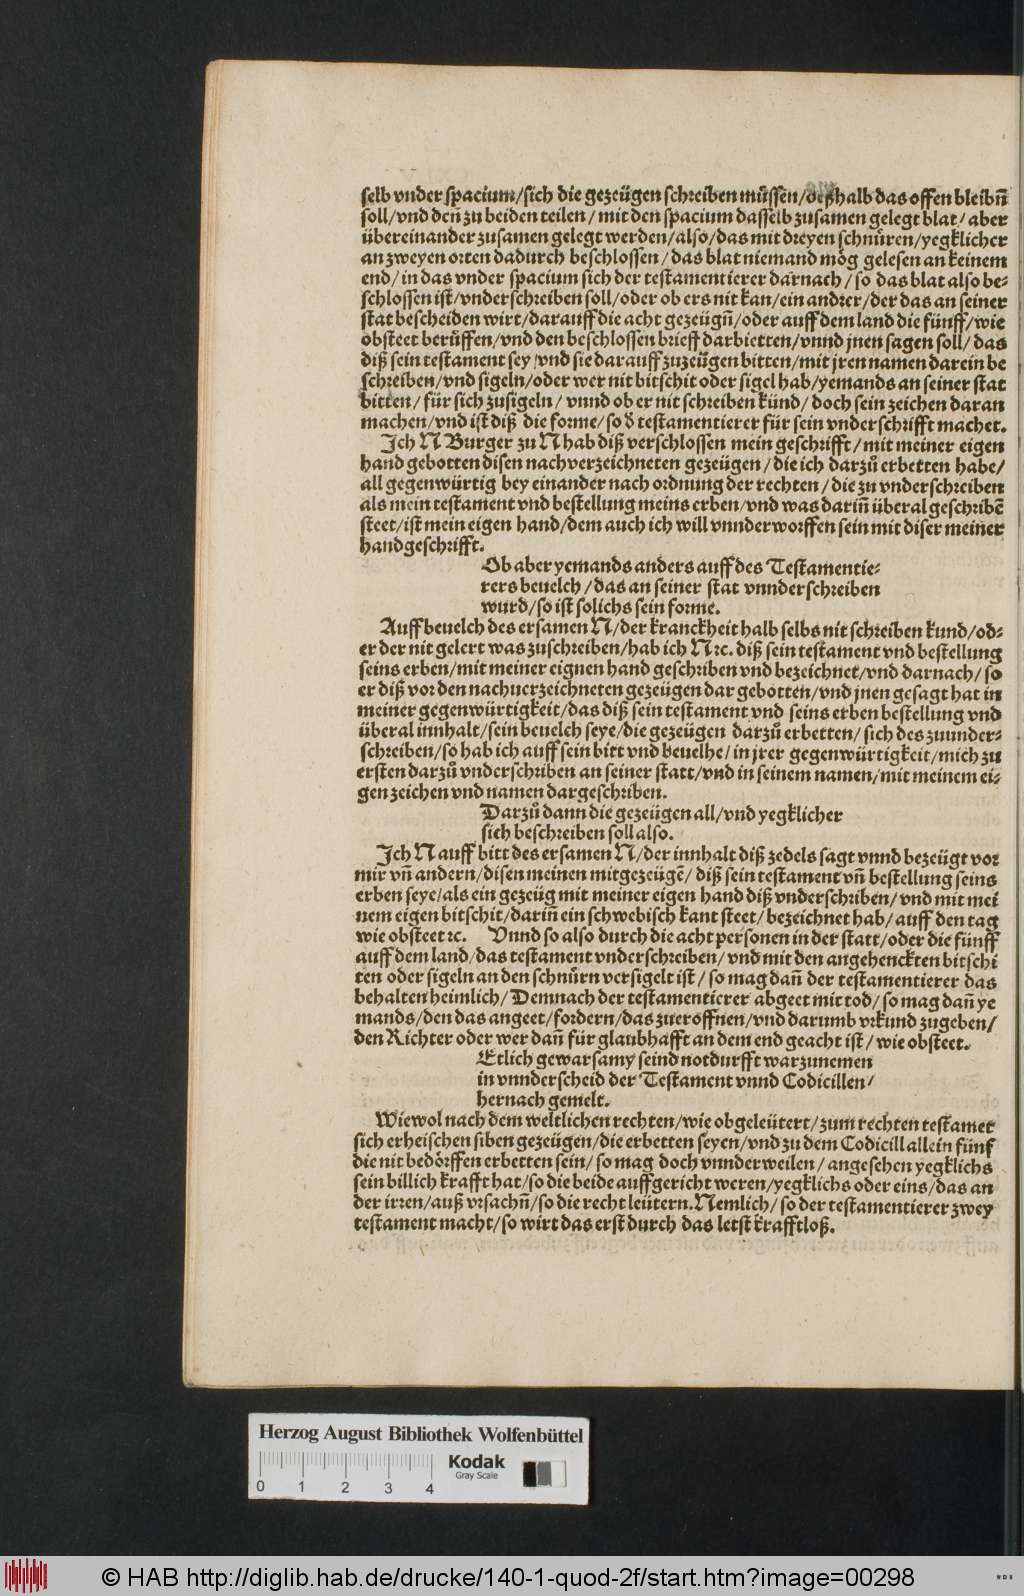 selb vnder spacium/sich die gezeügen schreiben müssen/deßhalb das offen bleibñ
soll/vnd deñ zu beiden teilen/mit den spacium dasselb zusamen gelegt blat/aber
übereinander zusamen gelegt werden/also/das mit dreyen schnüren/yegklicher
an zweyen orten dadurch beschlossen/das blat niemand mög gelesen an keinem
end/in das vnder spacium sich der testamentierer darnach/so das blat also be-
schlossen ist/vnderschreiben soll/oder ob ers nit kan/ein andrer/der das an seiner
stat bescheiden wirt/darauff die acht gezeügñ/oder auff dem land die fünff/wie
obsteet berüffen/vnd den beschlossen brieff darbietten/vnnd jnen sagen soll/das
diß sein testament sey/vnd sie darauff zuzeügen bitten/mit jren namen darein be
schreiben/vnd sigeln/oder wer nit bitschit oder sigel hab/yemands an seiner stat
bitten/für sich zusigeln/vnnd ob er nit schreiben künd/doch sein zeichen daran
machen/vnd ist diß die forme/so d̕ testamentierer für sein vnderschrifft machet.
Ich N Burger zu N hab diß verschlossen mein geschrifft/mit meiner eigen
hand gebotten disen nachverzeichneten gezeügen/die ich darzů erbetten habe/
all gegenwürtig bey einander nach ordnung der rechten/die zu vnderschreiben
als mein testament vnd bestellung meins erben/vnd was dariñ überal geschribẽ
steet/ist mein eigen hand/dem auch ich will vnnderworffen sein mit diser meiner
handgeschrifft.
Ob aber yemands anders auff des Testamentie-
rers beuelch/das an seiner stat vnnderschreiben
wurd/so ist solichs sein forme.
Auff beuelch des ersamen N/der kranckheit halb selbs nit schreiben kund/od-
er der nit gelert was zuschreiben/hab ich N ꝛc. diß sein testament vnd bestellung
seins erben/mit meiner eignen hand geschriben vnd bezeichnet/vnd darnach/so
er diß vor den nachuerzeichneten gezeügen dar gebotten/vnd jnen gesagt hat in
meiner gegenwürtigkeit/das diß sein testament vnd seins erben bestellung vnd
überal innhalt/sein beuelch seye/die gezeügen darzů erbetten/sich des zuunder-
schreiben/so hab ich auff sein bitt vnd beuelhe/in jrer gegenwürtigkeit/mich zu
ersten darzů vnderschriben an seiner statt/vnd in seinem namen/mit meinem ei-
gen zeichen vnd namen dargeschriben.
Darzů dann die gezeügen all/vnd yegklicher
sich beschreiben soll also.
Ich N auff bitt des ersamen N/der innhalt diß zedels sagt vnnd bezeügt vor
mir vñ andern/disen meinen mitgezeügẽ/diß sein testament vñ bestellung seins
erben seye/als ein gezeüg mit meiner eigen hand diß vnderschriben/vnd mit mei
nem eigen bitschit/dariñ ein schwebisch kant steet/bezeichnet hab/auff den tag
wie obsteet ꝛc. Vnnd so also durch die acht personen in der statt/oder die fünff
auff dem land/das testament vnderschreiben/vnd mit den angehenckten bitschi
ten oder sigeln an den schnůrn versigelt ist/so mag dañ der testamentierer das
behalten heimlich/Demnach der testamentierer abgeet mit tod/so mag dañ ye
mands/den das angeet/fordern/das zueröffnen/vnd darumb vrkund zugeben/
den Richter oder wer dañ für glaubhafft an dem end geacht ist/wie obsteet.
Etlich gewarsamy seind notdurfft warzunemen
in vnnderscheid der Testament vnnd Codicillen/
hernach gemelt.
Wiewol nach dem weltlichen rechten/wie obgeleütert/zum rechten testamet
sich erheischen siben gezeügen/die erbetten seyen/vnd zu dem Codicill allein fünf
die nit bedörffen erbetten sein/so mag doch vnnderweilen/angesehen yegklichs
sein billich krafft hat/so die beide auffgericht weren/yegklichs oder eins/das an
der irren/auß vrsachñ/so die recht leütern. Nemlich/so der testamentierer zwey
testament macht/so wirt das erst durch das letst krafftloß.
Herzog August Bibliothek Wolfenbüttel
Kodak
Gray Scale
0 1 2 3 4
© HAB http://diglib.hab.de/drucke/140-1-quod-2f/start.htm?image=00298